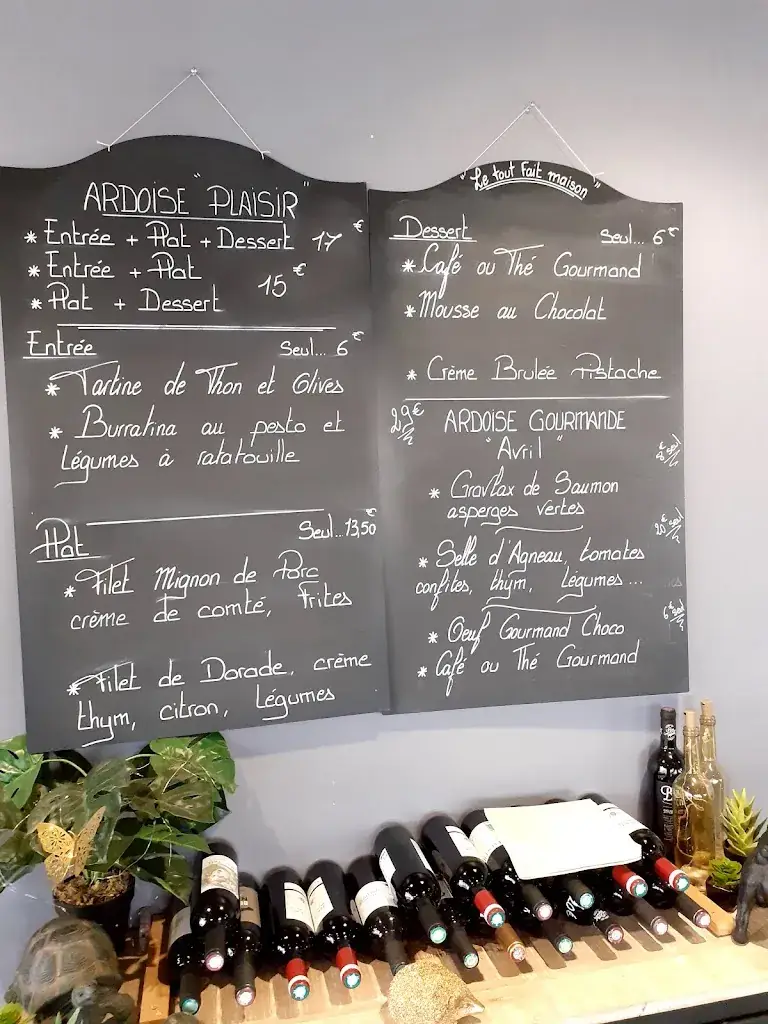 ARDOISE "PLAISIR"
* Entrée + Plat + Dessert 17€
* Entrée + Plat
15€
* Plat + Dessert
Entrée Seul... 6€
* Tartine de Thon et Olives
* Burratina au pesto et
Légumes à ratatouille
Plat Seul...13,50€
* Filet Mignon de Porc
crème de comté, frites
* Filet de Dorade, crème
thym, citron, Légumes
"Le tout fait maison"
Dessert Seul... 6€
* Café ou Thé Gourmand
* Mousse au Chocolat
* Crème Brulée Pistache
29€
ARDOISE GOURMANDE
"Avril"
* Gravlax de Saumon
asperges vertes
* Selle d'Agneau, tomates
confites, thym, Légumes...
20€ seul
* Oeuf Gourmand Choco
* Café ou Thé Gourmand